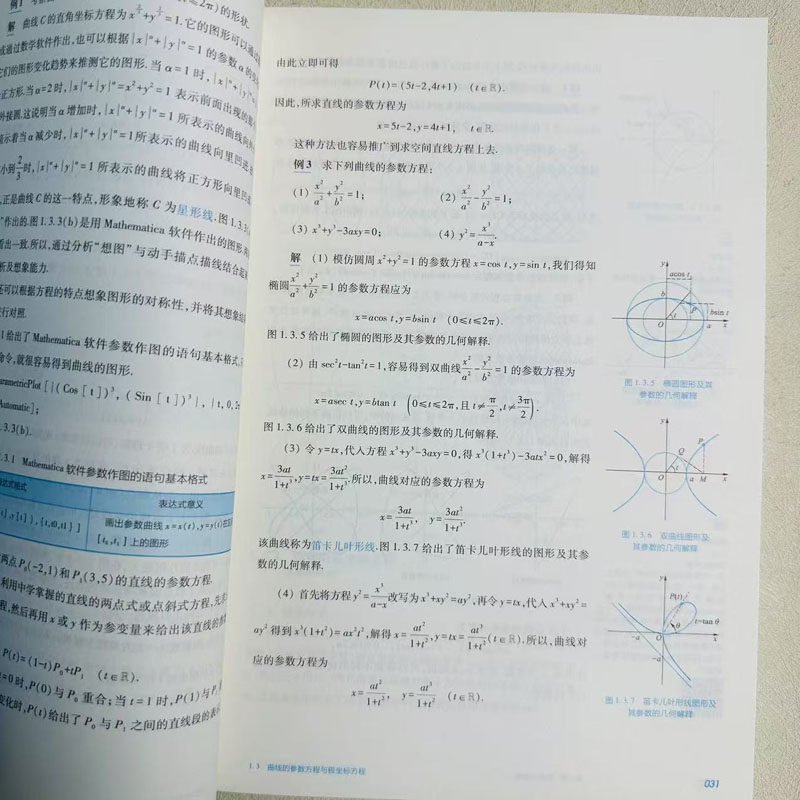 例1
2π)的形状.
解 曲线C的直角坐标方程为 x^{2/3}+y^{2/3}=1.它的图形可以通过
或通过数学软件作出,也可以根据|x|^α+|y|^α=1的参数α的变
它们的图形变化趋势来推测它的图形.当α=1时,|x|^α+|y|^α
正方形.当α=2时,|x|^α+|y|^α=x²+y²=1 表示前面出现的
外接圆.这说明当α增加时,|x|^α+|y|^α=1 所表示的曲线向
示着当α减少时,|x|^α+|y|^α=1所表示的曲线向里凹进
小到2/3时,|x|^α+|y|^α=1 所表示的曲线将正方形向里凹
,正是曲线C的这一特点,形象地称 C 为星形线.图1.3.3
"作出的.图1.3.3(b)是用 Mathematica 软件作出的图形,
看出一致.所以,通过分析"想图"与动手描点描线结合起
析及想象能力.
还可以根据方程的特点想象图形的对称性,并将其想象
行对照.
1给出了 Mathematica 软件参数作图的语句基本格式.
命令,就很容易得到曲线的图形.
arametricPlot [{(Cos [t])³, (Sin [t])³}, {t,0,2
Automatic];
.3.3(b).
.3.1 Mathematica 软件参数作图的语句基本格式
达式格式 表达式意义
[t],y[t]},{t,t0,t1}] 画出参数曲线 x=x(t),y=y(t)
[t₀,t₁]上的图形
两点P₀(-2,1)和P₁(3,5)的直线的参数方程.
利用中学掌握的直线的两点式或点斜式方程,先
程,然后再用x或y作为参变量来给出该直线的
P(t)=(1-t)P₀+tP₁ (t∈ℝ).
t=0时,P(0)与P₀重合;当t=1时,P(1)与P
变化时,P(t)给出了P₀与P₁之间的直线段的表
由此立即可得
P(t)=(5t-2,4t+1) (t∈ℝ).
因此,所求直线的参数方程为
x=5t-2,y=4t+1, t∈ℝ.
这种方法也容易推广到求空间直线方程上去.
例3 求下列曲线的参数方程:
(1) x²/a²+y²/b²=1; (2) x²/a²-y²/b²=1;
(3) x³+y³-3axy=0; (4) y²=x³/(a-x).
解 (1) 模仿圆周x²+y²=1的参数方程x=cos t,y=sin t,我们得知
椭圆x²/a²+y²/b²=1的参数方程应为
x=acos t,y=bsin t (0≤t≤2π).
图1.3.5给出了椭圆的图形及其参数的几何解释.
(2) 由sec²t-tan²t=1,容易得到双曲线x²/a²-y²/b²=1的参数方程为
x=asec t,y=btan t (0≤t≤2π,且t≠π/2,t≠3π/2).
图1.3.6给出了双曲线的图形及其参数的几何解释.
(3) 令y=tx,代入方程x³+y³-3axy=0,得x³(1+t³)-3atx²=0,解得
x=3at/(1+t³),y=tx=3at²/(1+t³).所以,曲线对应的参数方程为
x=3at/(1+t³), y=3at²/(1+t³).
该曲线称为笛卡儿叶形线.图1.3.7给出了笛卡儿叶形线的图形及其参
数的几何解释.
(4) 首先将方程y²=x³/(a-x)改写为x³+xy²=ay²,再令y=tx,代入x³+xy²=
ay²得到x³(1+t²)=ax²t²,解得x=at²/(1+t²),y=tx=at³/(1+t²)(t∈ℝ).所以,曲线对
应的参数方程为
x=at²/(1+t²), y=at³/(1+t²) (t∈ℝ).
y
acos t
b
P
bsin t
t
O
a
x
图1.3.5 椭圆图形及其
参数的几何解释
y
P
Q
t
O
a
M
x
图1.3.6 双曲线图形及
其参数的几何解释
y
P(t)
t=tan θ
θ
-a
O
x
-a
图1.3.7 笛卡儿叶形线图形及
其参数的几何解释
1.3 曲线的参数方程与极坐标方程
031